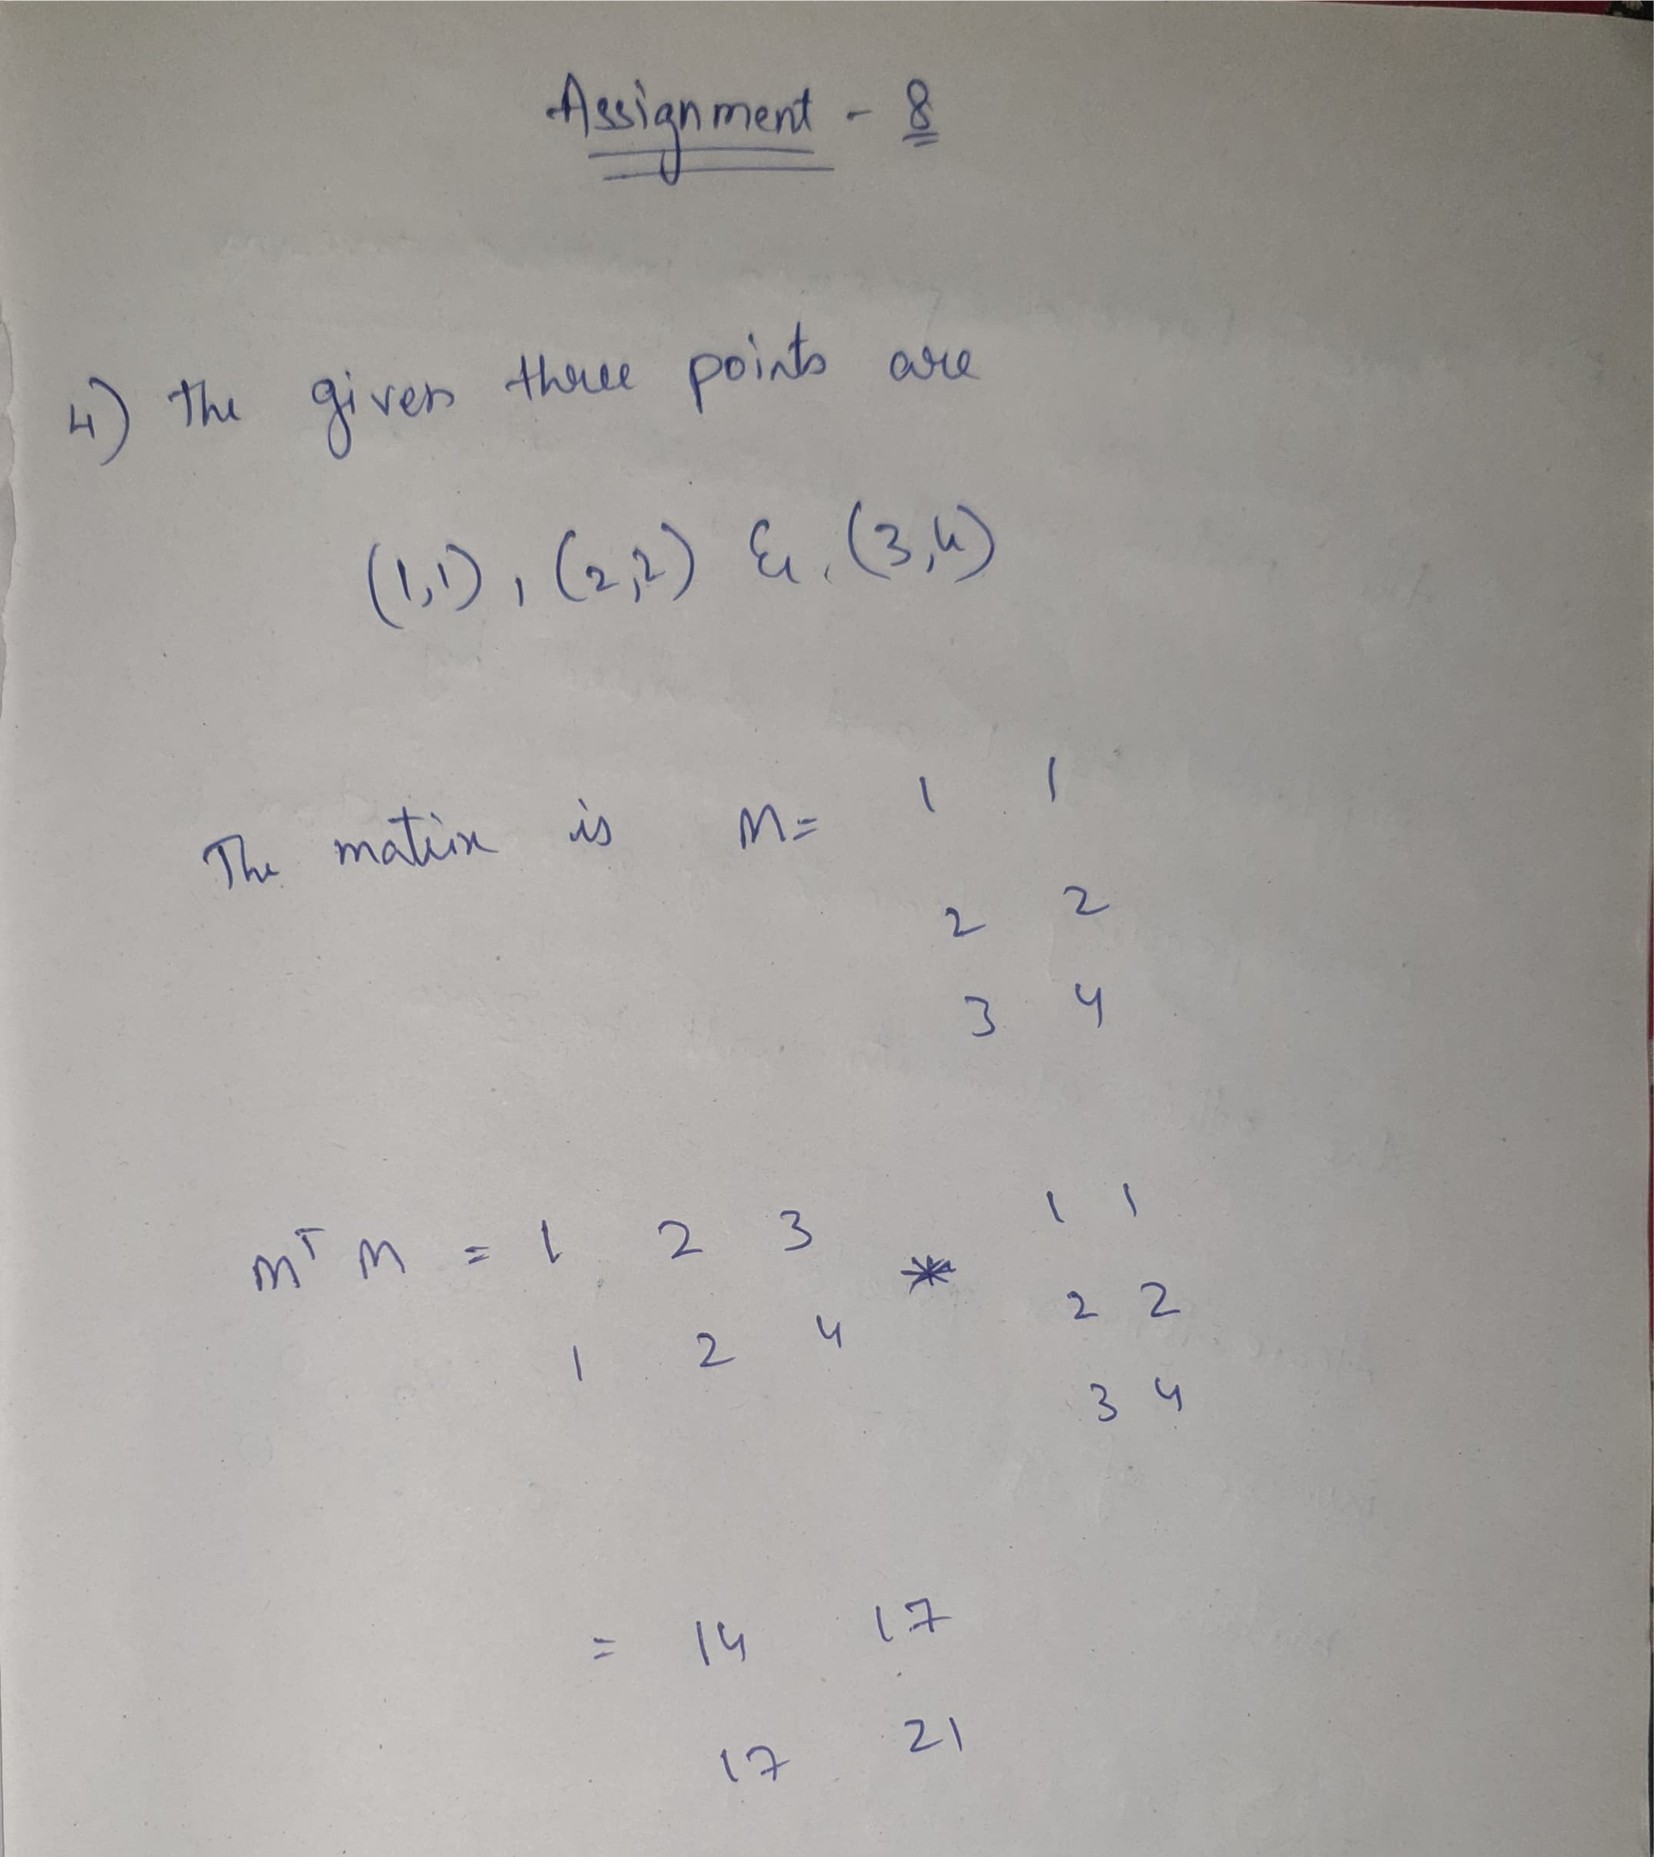 Assignment - 8
4) The given three points are
(1,1), (2,2) &. (3,4)
The matrix is M= 1 1
2 2
3 4
MT M = 1 2 3 * 1 1
1 2 4 2 2
3 4
= 14 17
17 21